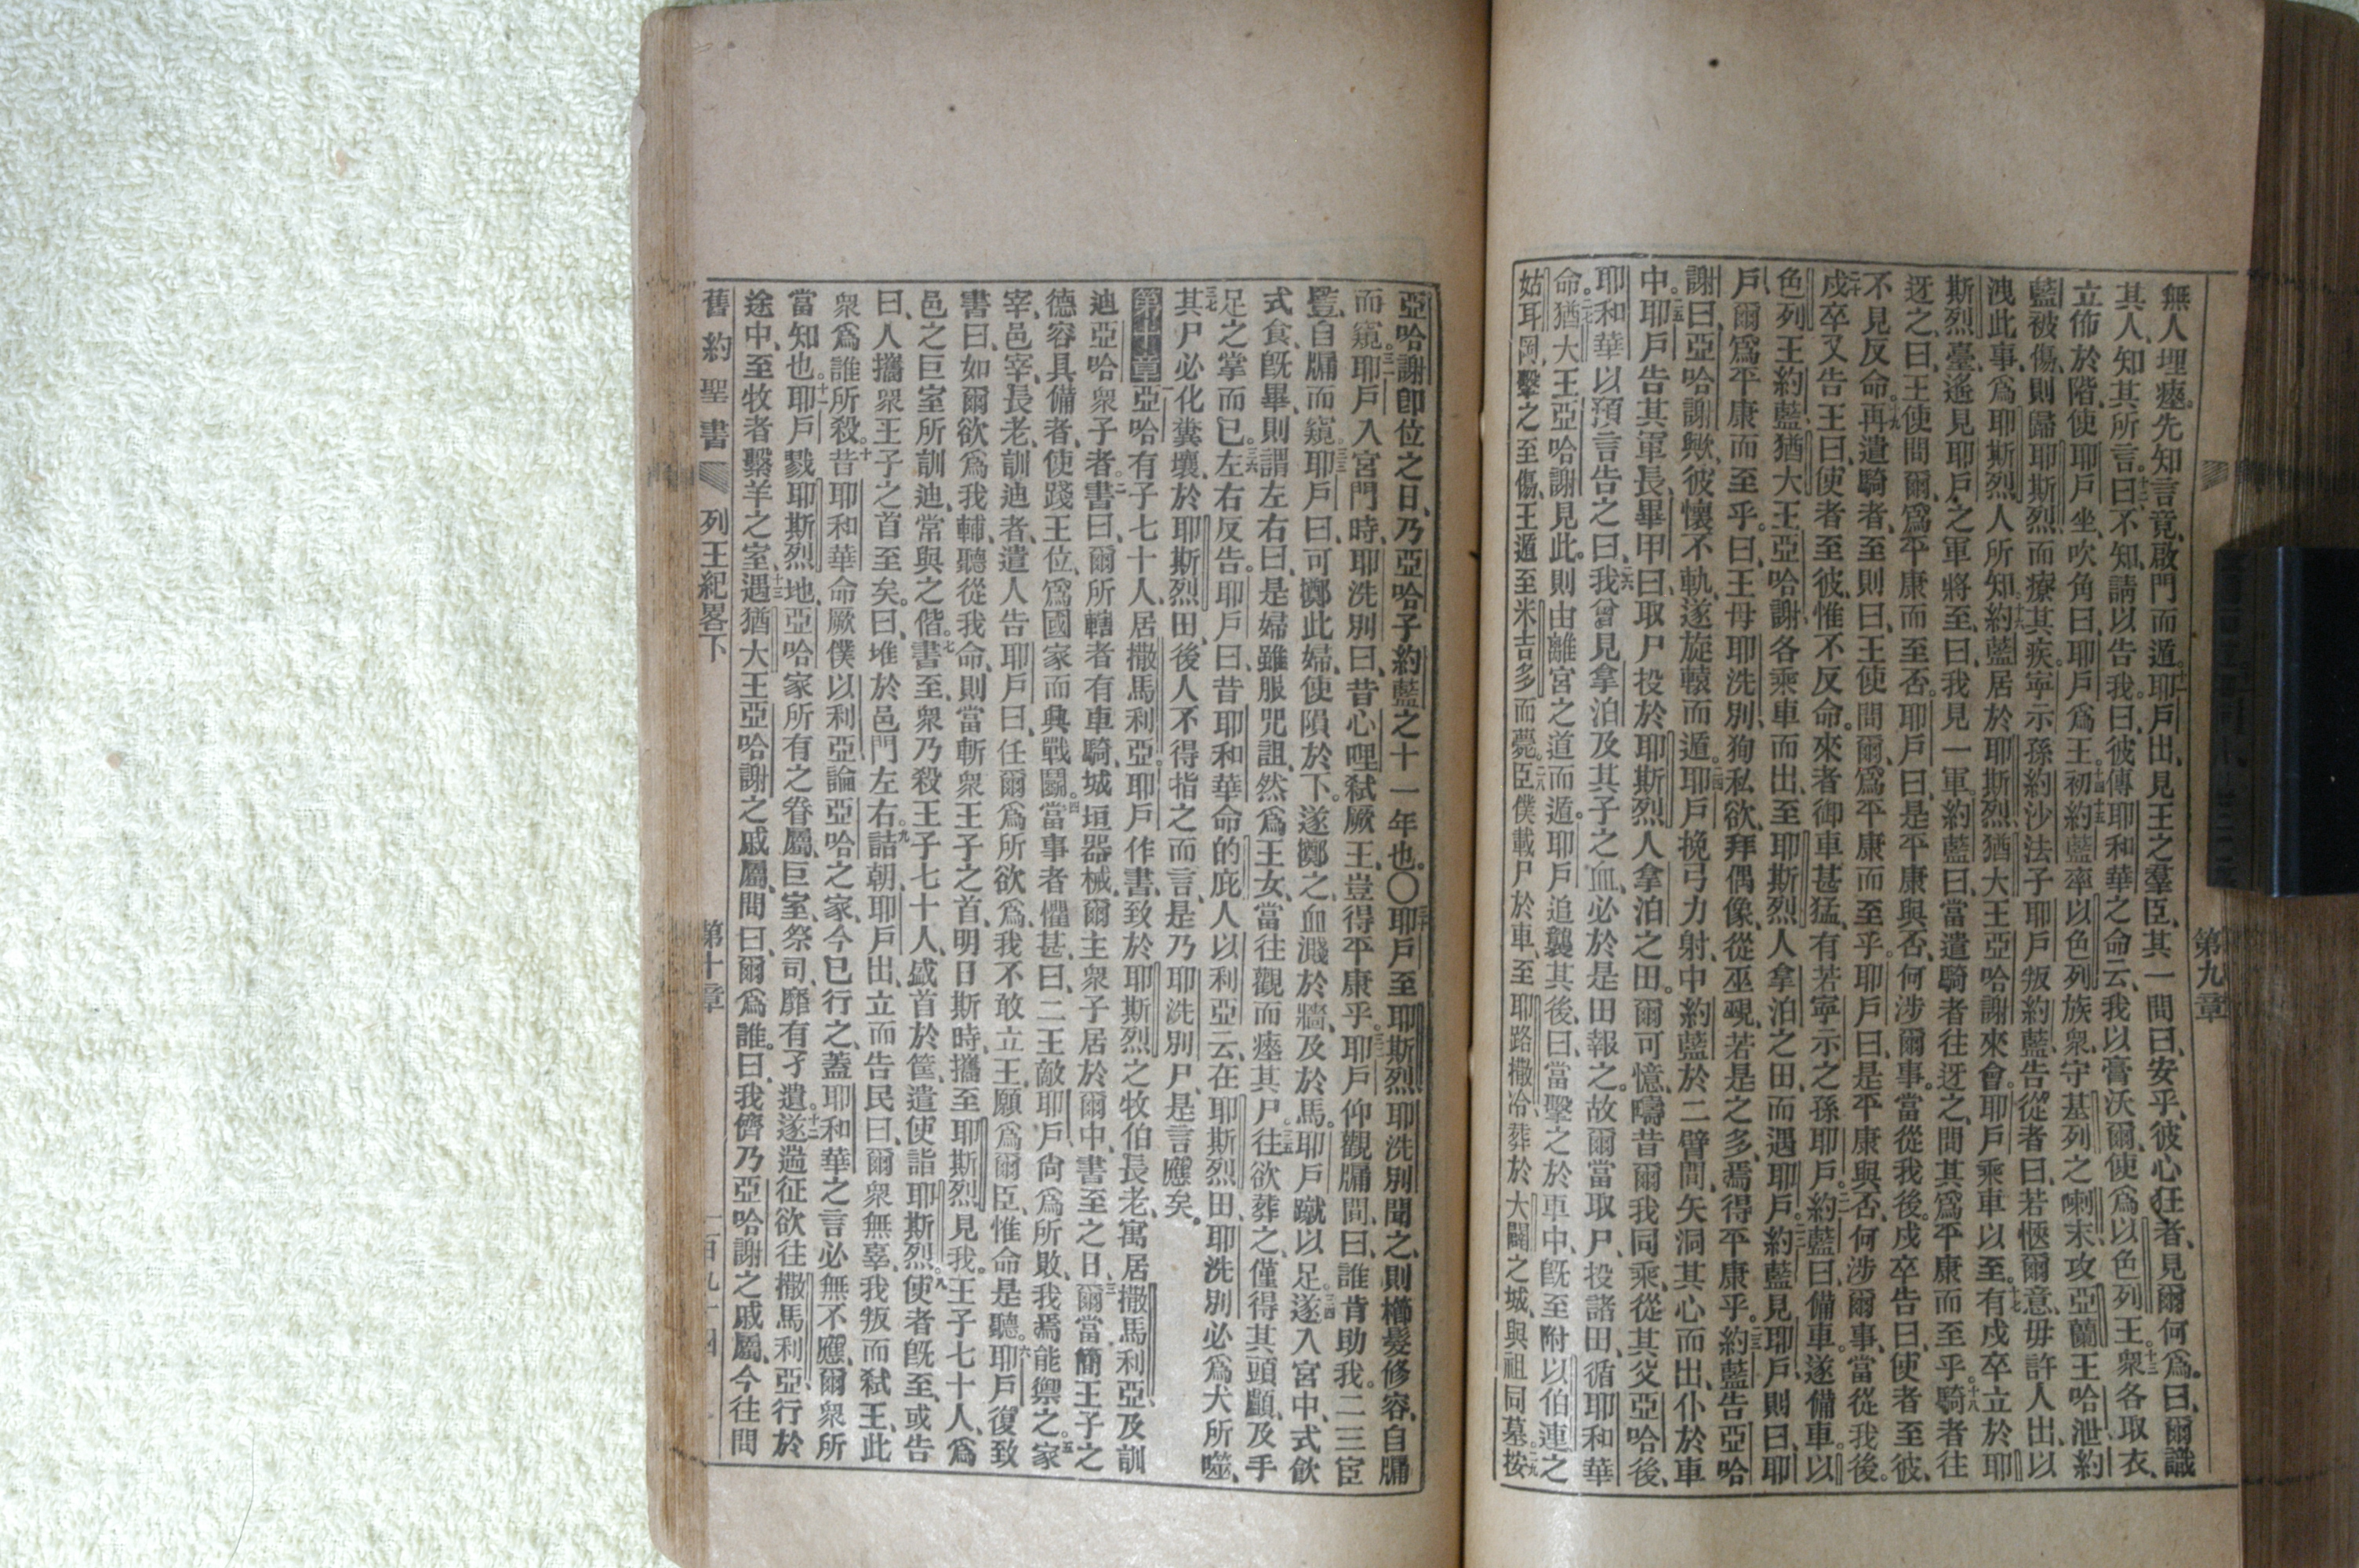 第九章
無人埋瘞。先知言竟、啟門而遁。十一耶戶出、見王之羣臣、其一問曰、安乎、彼心狂者、見爾何爲。曰、爾識
其人、知其所言。十二曰、不知、請以告我。曰、彼傳耶和華之命云、我以膏沃爾、使爲以色列王。十三衆各取衣、
立佈於階、使耶戶坐、吹角曰、耶戶爲王。十四初約藍率以色列族衆、守基列之喇末、攻亞蘭王哈泄、十五約
藍被傷、則歸耶斯烈而療其疾。寧示孫約沙法子耶戶叛約藍、告從者曰、若愜爾意、毋許人出、以
洩此事、爲耶斯烈人所知。十六約藍居於耶斯烈、猶大王亞哈謝來會。耶戶乘車以至。十七有戍卒立於耶
斯烈臺、遙見耶戶之軍將至、曰、我見一軍。約藍曰、當遣騎者往迓之、問其爲平康而至乎。十八騎者往
迓之、曰、王使問爾、爲平康而至否。耶戶曰、是平康與否、何涉爾事。當從我後。戍卒告曰、使者至彼、
不見反命。十九再遣騎者、至則曰、王使問爾、爲平康而至乎。耶戶曰、是平康與否、何涉爾事、當從我後。
二十戍卒又告王曰、使者至彼、惟不反命。來者御車甚猛、有若寧示之孫耶戶。二一約藍曰、備車。遂備車。以
色列王約藍、猶大王亞哈謝、各乘車而出、至耶斯烈人拿泊之田、而遇耶戶。二二約藍見耶戶、則曰、耶
戶、爾爲平康而至乎。曰、王母耶洗別、狗私欲、拜偶像、從巫覡、若是之多、焉得平康乎。二三約藍告亞哈
謝曰、亞哈謝歟、彼懷不軌、遂旋轅而遁。二四耶戶挽弓力射、中約藍於二臂間、矢洞其心而出、仆於車
中。二五耶戶告其軍長畢甲曰、取尸投於耶斯烈人拿泊之田。爾可憶疇昔爾我同乘、從其父亞哈後、
耶和華以預言告之曰、二六我曾見拿泊及其子之血、必於是田報之。故爾當取尸、投諸田、循耶和華
命。二七猶大王亞哈謝見此、則由離宮之道而遁。耶戶追襲其後、曰、當擊之於車中、旣至附以伯連之
姑耳岡、擊之至傷、王遁至米吉多而薨。二八臣僕載尸於車、至耶路撒冷、葬於大闢之城、與祖同墓。二九按
亞哈謝卽位之日、乃亞哈子約藍之十一年也。〇三十耶戶至耶斯烈、耶洗別聞之、則櫛髮修容、自牖
而窺。三一耶戶入宮門時、耶洗別曰、昔心哩弒厥王、豈得平康乎。三二耶戶仰觀牖間、曰、誰肯助我。二三宦
豎、自牖而窺。三三耶戶曰、可擲此婦、使隕於下。遂擲之、血濺於牆、及於馬。耶戶蹴以足。三四遂入宮中、式飲
式食、旣畢、則謂左右曰、是婦雖服咒詛、然爲王女、當往觀而瘞其尸。三五往欲葬之、僅得其頭顱、及手
足之掌而已。三六左右反告。耶戶曰、昔耶和華命的庇人以利亞云、在耶斯烈田、耶洗別必爲犬所噬、
三七其尸必化糞壤、於耶斯烈田、後人不得指之而言、是乃耶洗別尸、是言應矣。
第十章 一亞哈有子七十人、居撒馬利亞。耶戶作書、致於耶斯烈之牧伯長老、寓居撒馬利亞、及訓
迪亞哈衆子者。二書曰、爾所轄者有車騎、城垣器械、爾主衆子居於爾中、書至之日、三爾當簡王子之
德容具備者、使踐王位、爲國家而興戰鬭。四當事者懼甚、曰、二王敵耶戶、尙爲所敗、我焉能禦之。五家
宰、邑宰、長老、訓迪者、遣人告耶戶曰、任爾爲所欲爲、我不敢立王、願爲爾臣、惟命是聽。六耶戶復致
書曰、如爾欲爲我輔、聽從我命、則當斬衆王子之首、明日斯時、攜至耶斯烈見我。王子七十人、爲
邑之巨室所訓迪、常與之偕。七書至、衆乃殺王子七十人、盛首於筐、遣使詣耶斯烈。八使者旣至、或告
曰、人攜衆王子之首至矣。曰、堆於邑門左右。九詰朝、耶戶出立而告民曰、爾衆無辜、我叛而弒王、此
衆爲誰所殺。十昔耶和華命厥僕以利亞論亞哈之家、今已行之、蓋耶和華之言必無不應、爾衆所
當知也。十一耶戶戮耶斯烈地、亞哈家所有之眷屬、巨室、祭司、靡有孑遺。十二遂遄征欲往撒馬利亞、行於
途中、至牧者繫羊之室、十三遇猶大王亞哈謝之戚屬、問曰、爾爲誰。曰、我儕乃亞哈謝之戚屬、今往問
舊約聖書 列王紀畧下 第十章